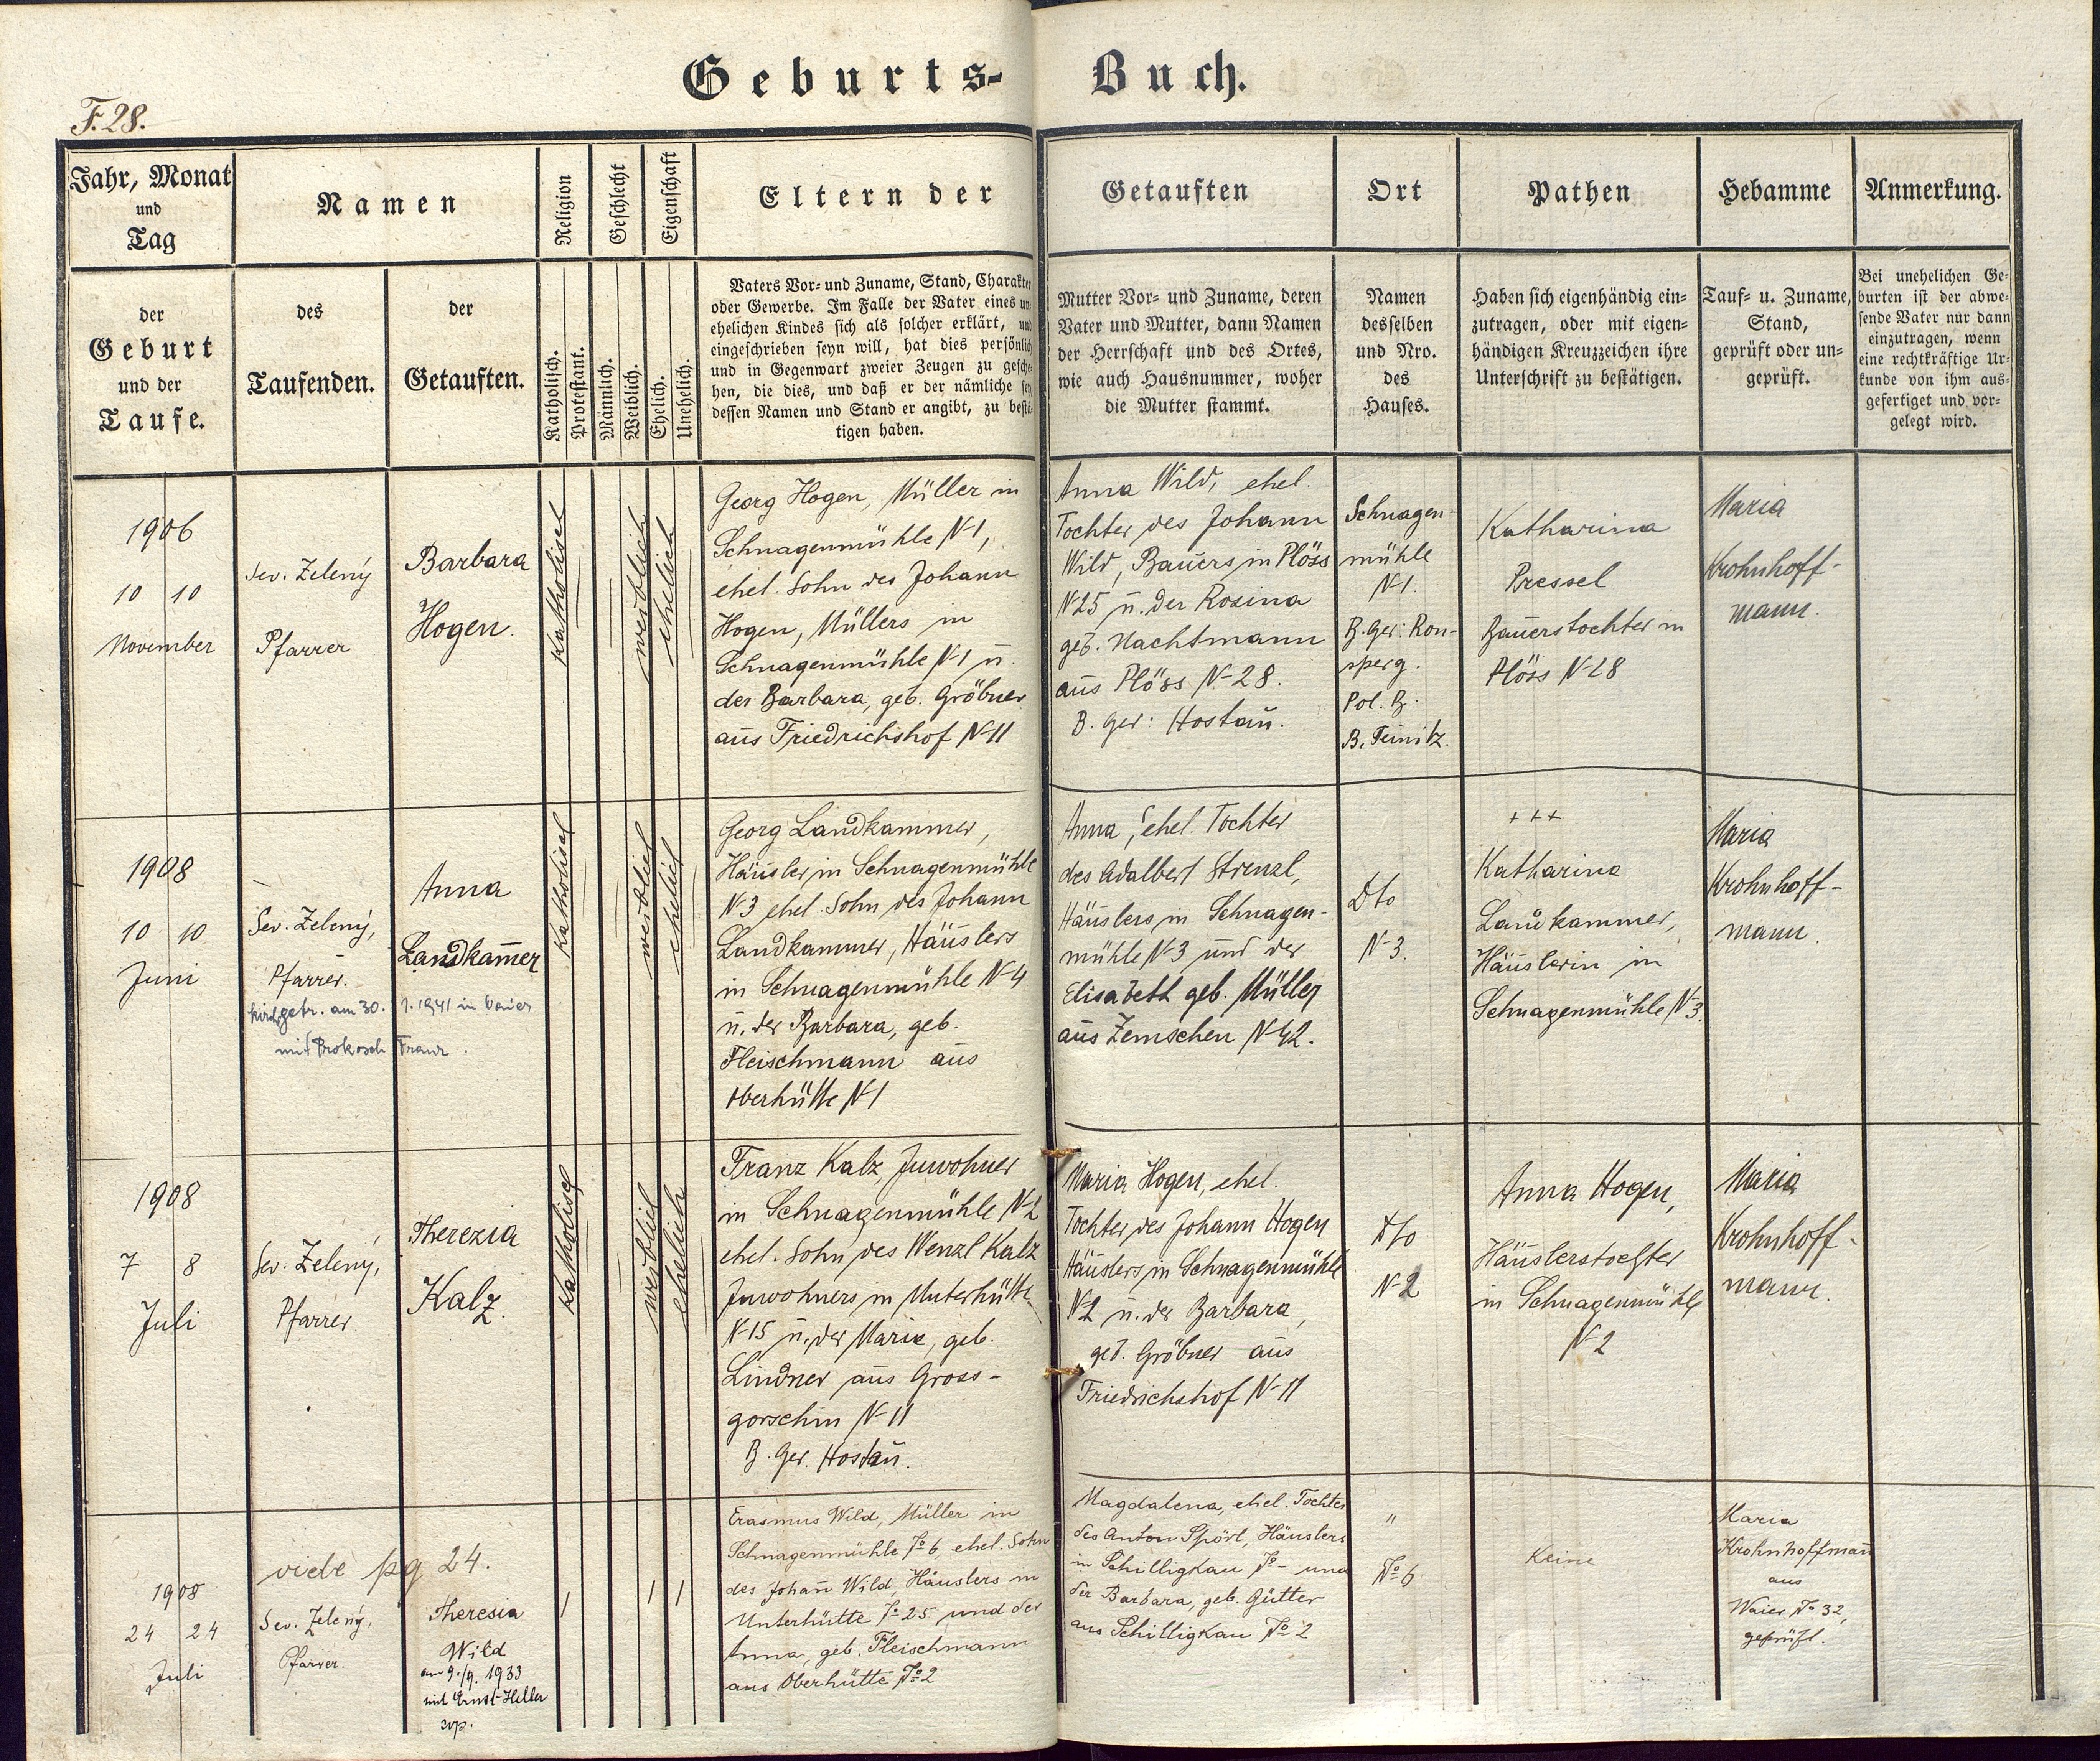 Geburts-Buch.
F. 28.
Jahr, Monat
und
Tag
Namen
Religion
Geschlecht
Eigenschaft
Eltern der
Getauften
Ort
Pathen
Hebamme
Anmerkung.
der
Geburt
und der
Taufe.
des
Taufenden.
der
Getauften.
Katholisch.
Protestant.
Männlich.
Weiblich.
Ehelich.
Unehelich.
Vaters Vor- und Zuname, Stand, Charakter
oder Gewerbe. Im Falle der Vater eines un-
ehelichen Kindes sich als solcher erklärt, und
eingeschrieben seyn will, hat dies persönlich
und in Gegenwart zweier Zeugen zu gesche-
hen, die dies, und daß er der nämliche sey,
dessen Namen und Stand er angibt, zu bestä-
tigen haben.
Mutter Vor- und Zuname, deren
Vater und Mutter, dann Namen
der Herrschaft und des Ortes,
wie auch Hausnummer, woher
die Mutter stammt.
Namen
desselben
und Nro.
des
Hauses.
Haben sich eigenhändig ein-
zutragen, oder mit eigen-
händigen Kreuzzeichen ihre
Unterschrift zu bestätigen.
Tauf- u. Zuname,
Stand,
geprüft oder un-
geprüft.
Bei unehelichen Ge-
burten ist der abwe-
sende Vater nur dann
einzutragen, wenn
eine rechtkräftige Ur-
kunde von ihm aus-
gefertiget und vor-
gelegt wird.
1906
10 10
November
Sev. Zelený
Pfarrer
Barbara
Hogen.
katholisch
weiblich
ehelich
Georg Hogen, Müller in
Schnagenmühle N-1,
ehel. Sohn des Johann
Hogen, Müllers in
Schnagenmühle N-1 ū.
der Barbara, geb. Gröbner
aūs Friedrichshof N-11
Anna Wild, ehel.
Tochter des Johann
Wild, Baūers in Plöss
N-25 ū. der Rosina
geb. Nachtmann
aūs Plöss N-28.
B. Ger: Hostaū.
Schnagen-
mühle
N-1.
B. Ger: Ron-
sperg.
Pol. B.
B. Teinitz.
Katharina
Pressel
Baūerstochter in
Plöss N-28
Maria
Krohnhoff-
mann.
1908
10 10
Juni
Sev. Zelený,
Pfarrer.
kirchl. getr. am 30. 1. 1941 in Vaier
mit Prokosch Franz.
Anna
Landkam̄er
katholisch
weiblich
ehelich
Georg Landkammer,
Häūsler in Schnagenmühle
N-3 ehel. Sohn des Johann
Landkammer, Häūslers
in Schnagenmühle N-4
ū. der Barbara, geb.
Fleischmann aūs
Oberhütte N-1
Anna, ehel. Tochter
des Adalbert Strenzl,
Häūslers in Schnagen-
mühle N-3 und der
Elisabeth geb. Müller
aūs Zemschen N-42.
Dto
N-3.
+++
Katharina
Landkammer,
Häūslerin in
Schnagenmühle N-3.
Maria
Krohnhoff-
mann.
1908
7 8
Juli
Sev. Zelený,
Pfarrer
Therezia
Kalz.
katholisch
weiblich
ehelich
Franz Kalz, Inwohner
in Schnagenmühle N-2
ehel. Sohn des Wenzl Kalz
Inwohners in Unterhütte
N-15 ū. der Maria, geb.
Lindner aūs Gross-
gorschin N-11
B. Ger. Hostaū.
Maria Hogen, ehel.
Tochter des Johann Hogen
Häūslers in Schnagenmühle
N-2 ū. der Barbara,
geb. Gröbner aūs
Friedrichshof N-11
Dto
N-2
Anna Hogen,
Häūslerstochter
in Schnagenmühle
N-2
Maria
Krohnhoff-
mann.
vide pg 24.
1908
24 24
Juli
Sev. Zelený,
Pfarrer.
Theresia
Wild
am 9./9. 1933
mit Ernst Heller
cop.
Erasmus Wild, Müller in
Schnagenmühle No 6, ehel. Sohn
des Johan̄ Wild, Häuslers in
Unterhütte No 25 und der
Anna, geb. Fleischmann
aus Oberhütte No 2
Magdalena, ehel. Tochter
des Anton Spörl, Häuslers
in Schilligkau No - und
der Barbara, geb. Gütter
aus Schilligkau No 2
"
No 6
Keine
Maria
Krohnhoffman̄
aus
Waier No 32,
geprüft.